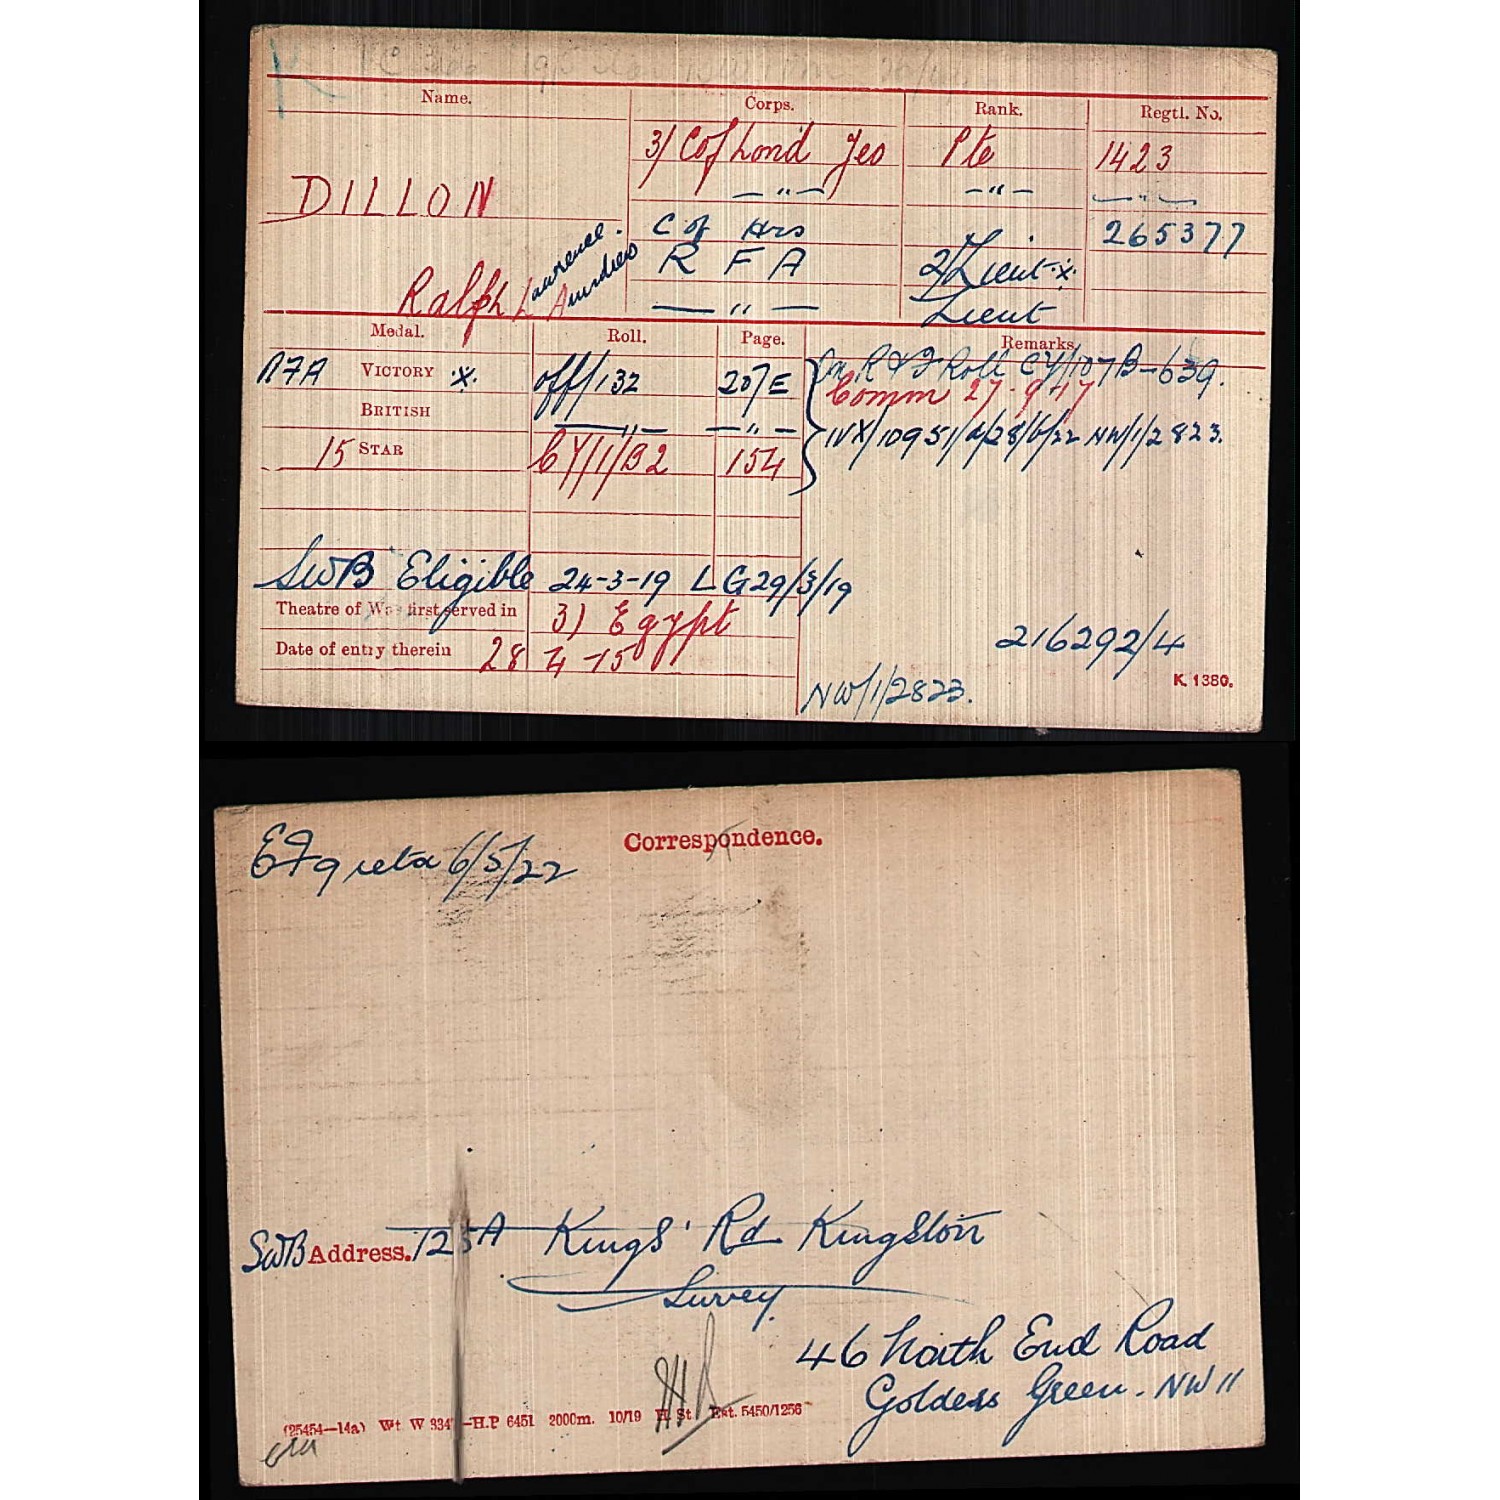 Name. Corps. Rank. Regtl. No.
3/ Cof Lond Yeo Pte 1423
DILLON — " — — " — — " —
C of Hrs 265377
R F A 2/Lieut .x.
Ralph Lawrence. Andrew — " — Lieut
Medal. Roll. Page. Remarks.
RFA VICTORY .x. Off/132 207E On R & F Roll CY/107B-639.
BRITISH — " — — " — Comm 27.9.17
15 STAR CY/1/B2 154 IVX/10951/ NW/1/2823.
SWB Eligible 24-3-19 LG29/3/19
Theatre of War first served in 3) Egypt
Date of entry therein 28 4 -15
216292/4
K. 1380.
NW/1/2823.
EF 6/5/22 Correspondence.
SWB Address. Kings' Rd Kingston
Survey.
46 North End Road
Golders Green. NW 11
(25454—14a) Wt W 334 —H.P 6451 2000m. 10/19 H. St Est. 5450/1256